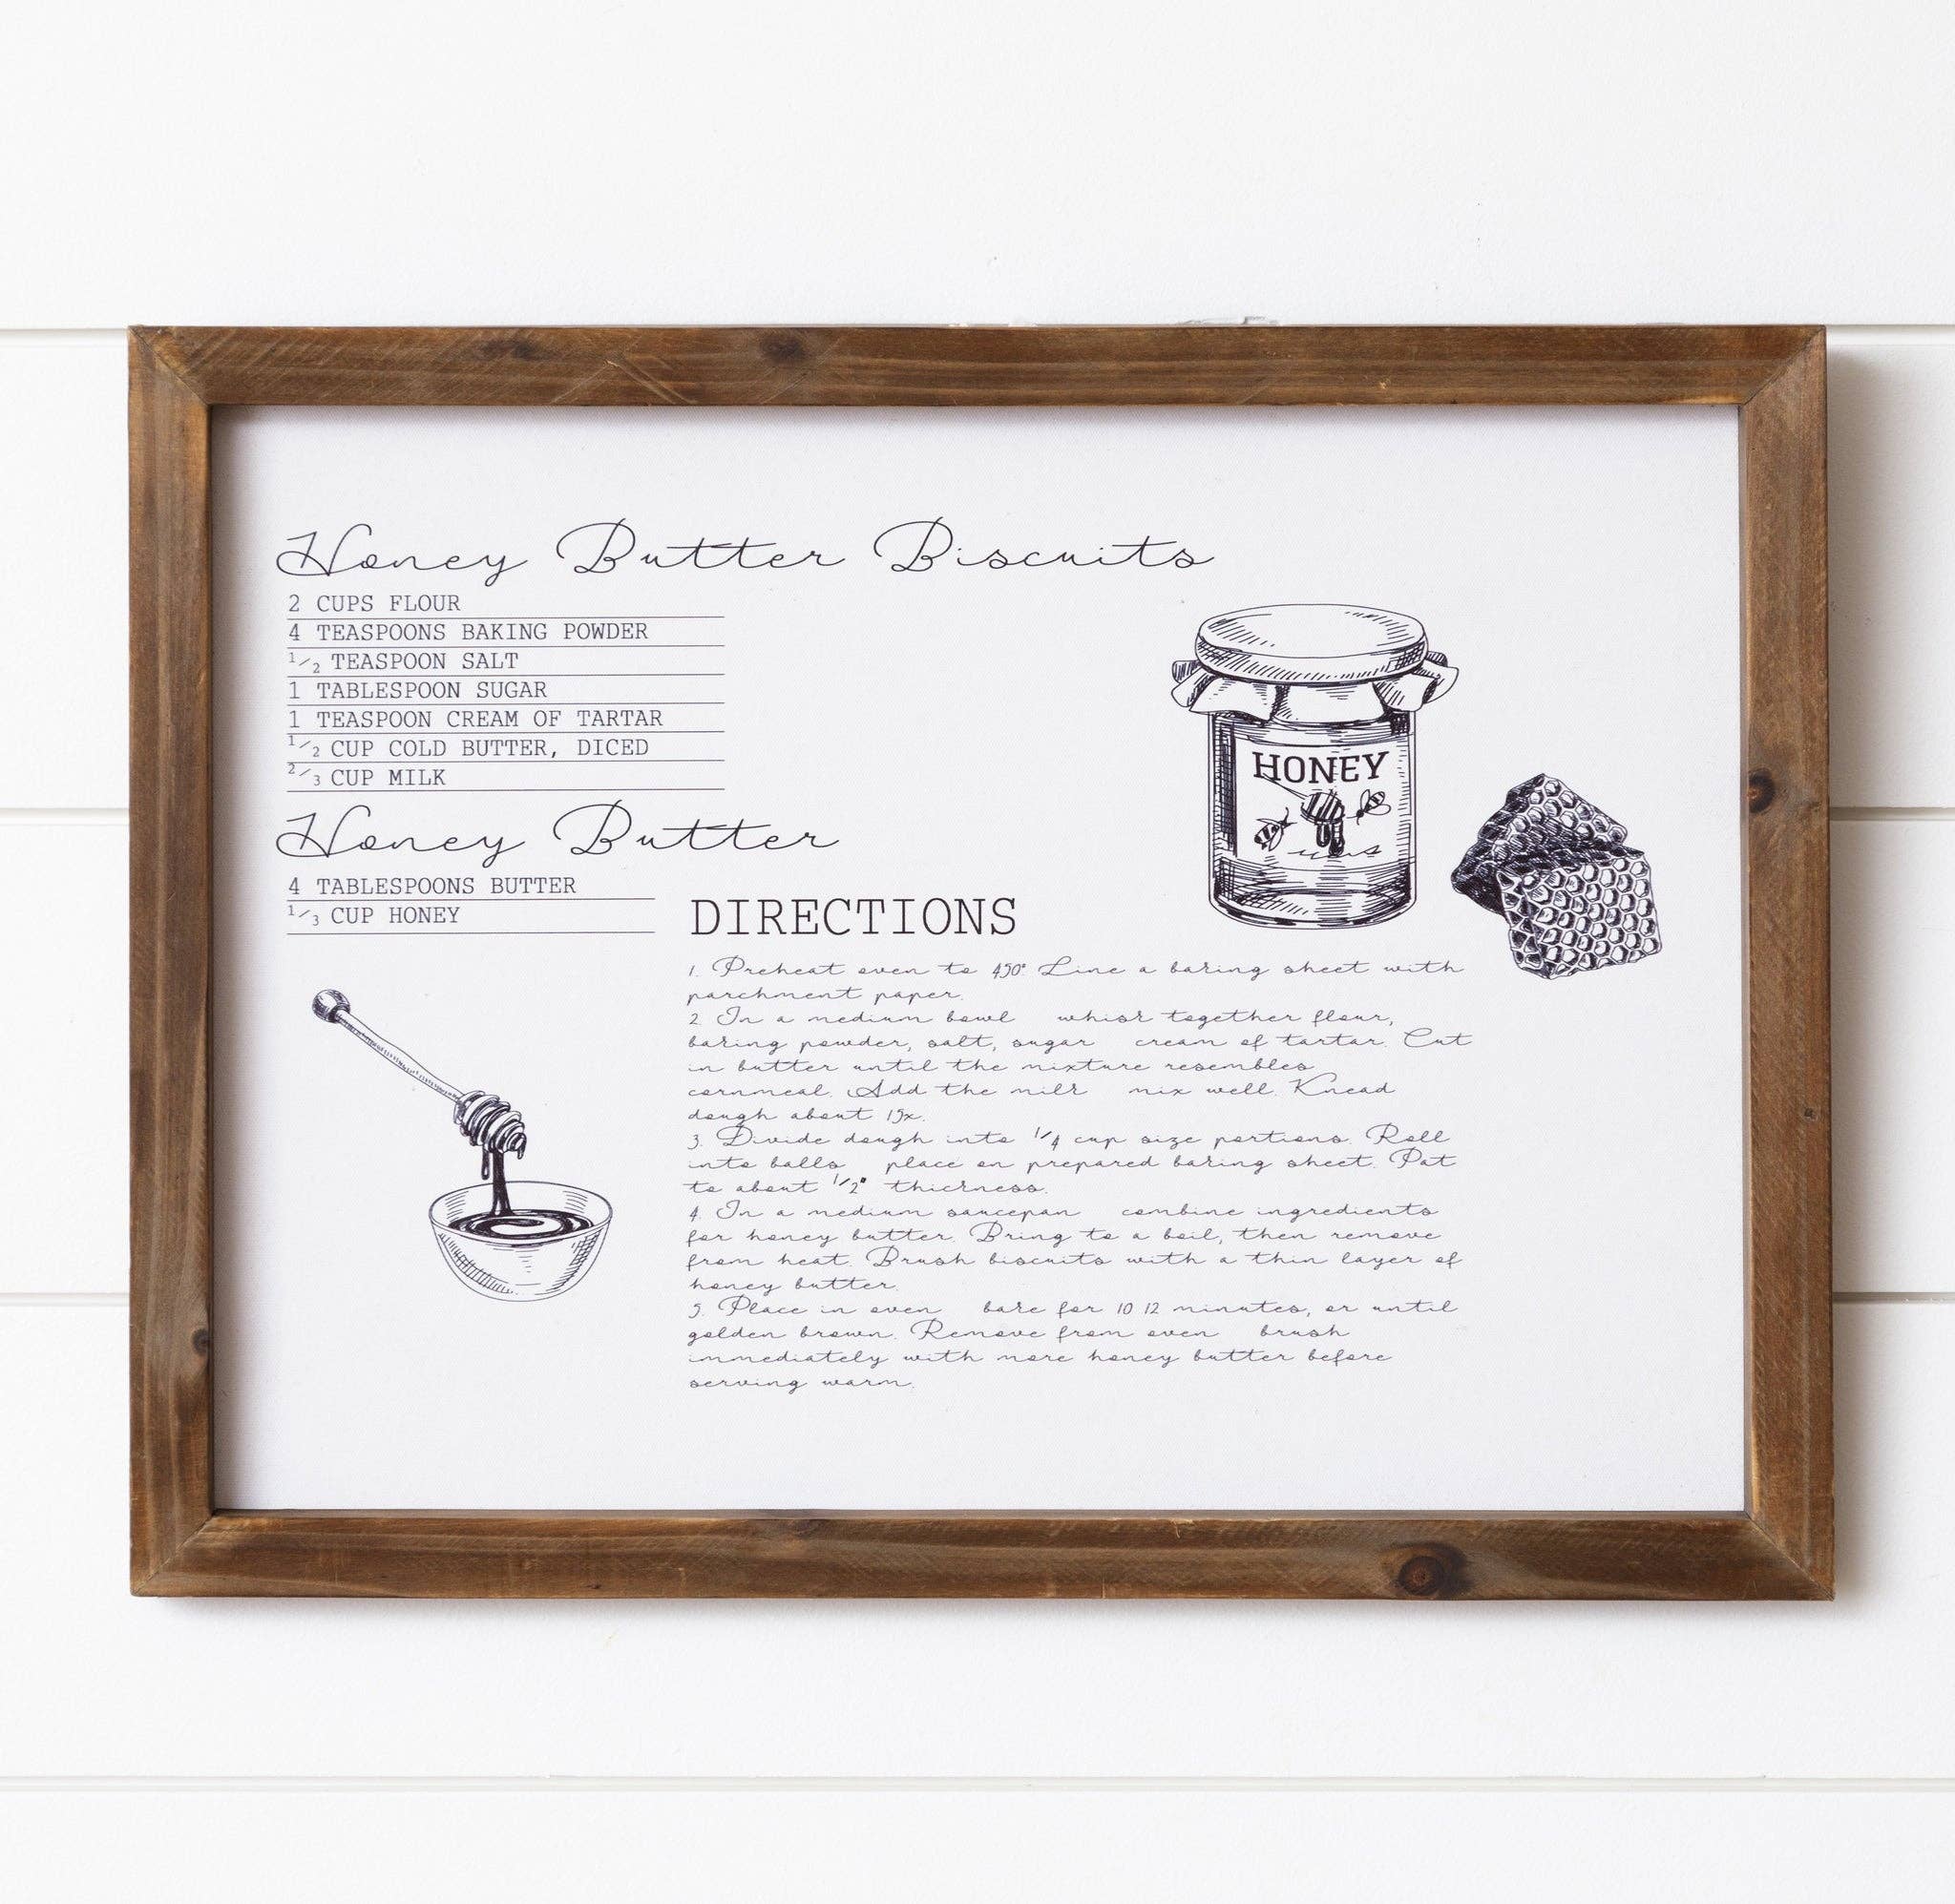 Honey Butter Biscuits
2 CUPS FLOUR
4 TEASPOONS BAKING POWDER
1/2 TEASPOON SALT
1 TABLESPOON SUGAR
1 TEASPOON CREAM OF TARTAR
1/2 CUP COLD BUTTER, DICED
2/3 CUP MILK
Honey Butter
4 TABLESPOONS BUTTER
1/3 CUP HONEY
HONEY
DIRECTIONS
1. Preheat oven to 450° Line a baking sheet with
parchment paper.
2. In a medium bowl whisk together flour,
baking powder, salt, sugar cream of tartar. Cut
in butter until the mixture resembles
cornmeal. Add the milk mix well. Knead
dough about 15x.
3. Divide dough into 1/4 cup size portions. Roll
into balls place on prepared baking sheet. Pat
to about 1/2" thickness.
4. In a medium saucepan combine ingredients
for honey butter. Bring to a boil, then remove
from heat. Brush biscuits with a thin layer of
honey butter.
5. Place in oven bake for 10 12 minutes, or until
golden brown. Remove from oven brush
immediately with more honey butter before
serving warm.